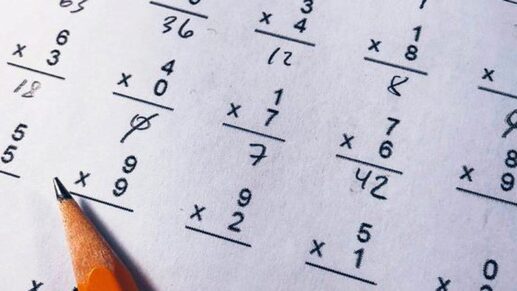 63
36
3
x 4
12
1
x 8
8
x
6
x 3
18
4
x 0
0
1
x 7
7
7
x 6
42
8
x 9
5
5
9
x 9
9
x 2
5
x 1
0
x
x